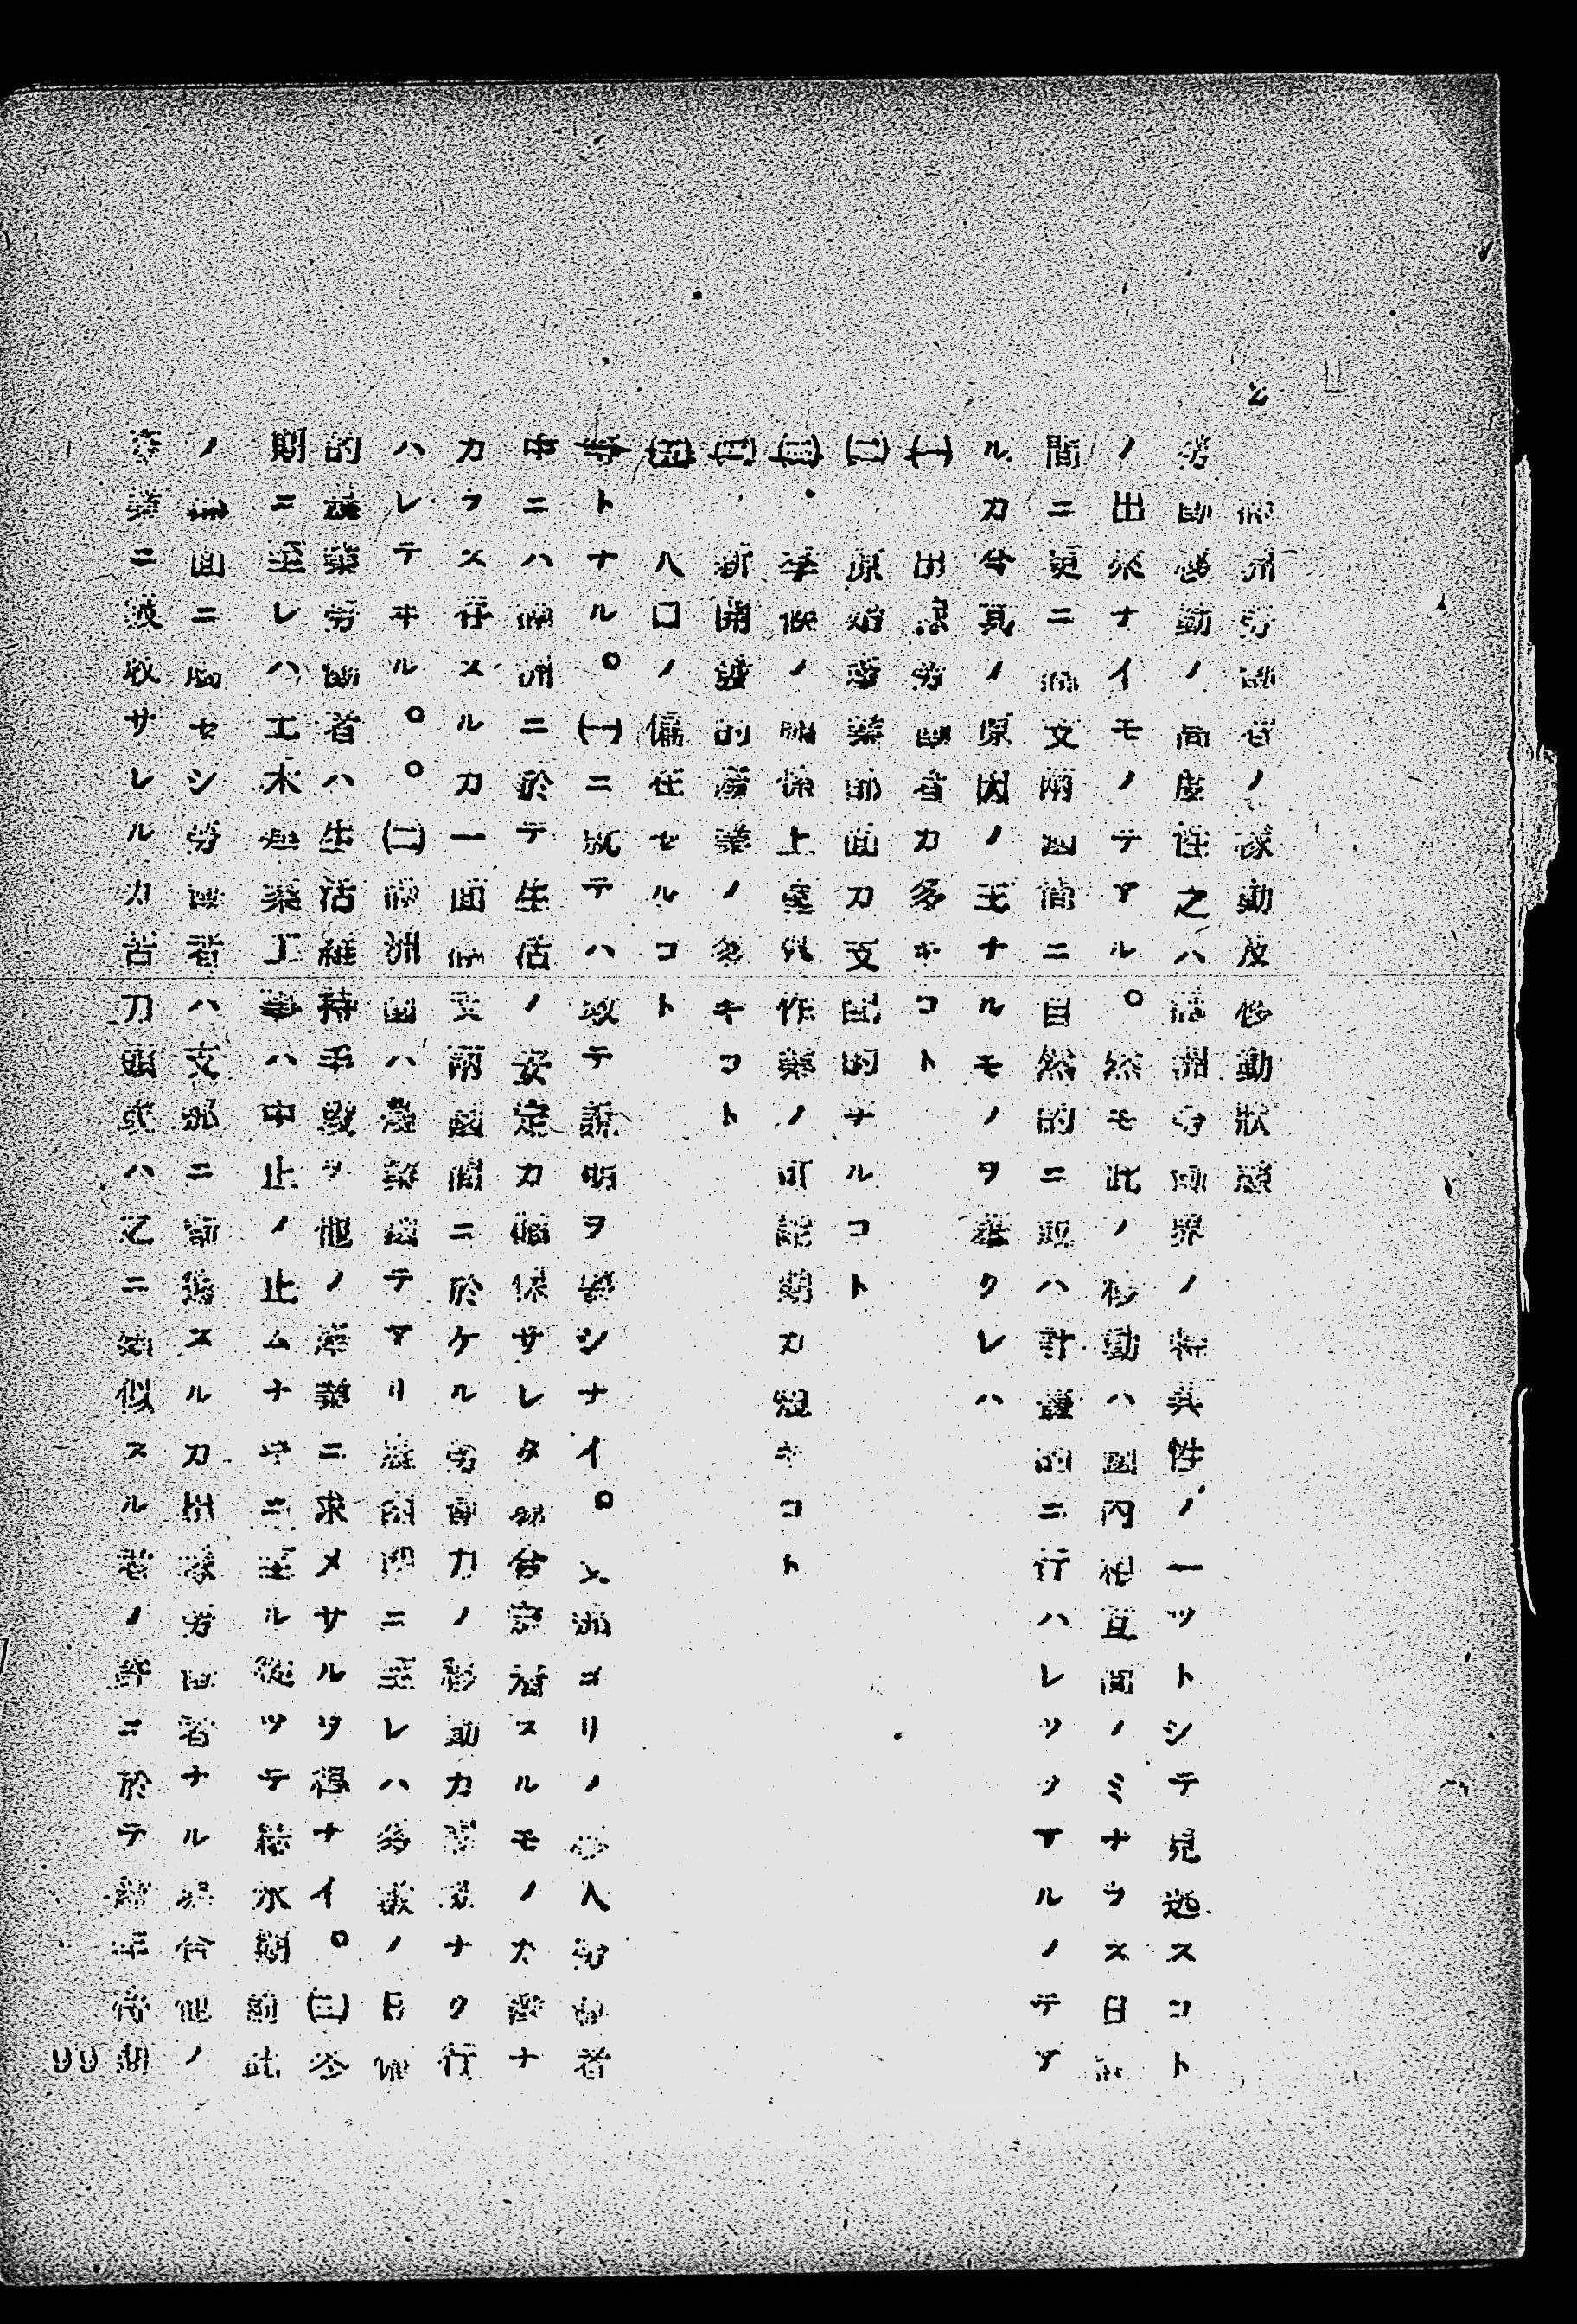 2 満洲労働者ノ移動及移動状態
労働移動ノ高度性之ハ満洲労働界ノ特異性ノ一ツトシテ見逃スコト
ノ出来ナイモノテアル。然モ此ノ移動ハ国内相互間ノミナラス日満
間ニ更ニ満支両国間ニ自然的ニ或ハ計画的ニ行ハレツツアルノテア
ルカ今其ノ原因ノ主ナルモノヲ挙クレハ
(一) 出稼労働者カ多キコト
(二) 原始産業部面カ支配的ナルコト
(三) 季候ノ関係上屋外作業ノ可能期カ短キコト
(四) 新開拓的産業ノ多キコト
(五) 人口ノ偏在セルコト
等トナル。(一)ニ就テハ改テ説明ヲ要シナイ。北支ヨリノ人労働者
中ニハ満洲ニ於テ生活ノ安定カ確保サレタ場合定着スルモノカ少ナ
カラス存スルカ一面満支両国間ニ於ケル労働力ノ移動カ間断ナク行
ハレテヰル。。(二)満洲国ハ農業国テアリ農閑期ニ至レハ多数ノ日傭
的農業労働者ハ生活維持手段ヲ他ノ産業ニ求メサルヲ得ナイ。(三)冬
期ニ至レハ土木建築工事ハ中止ノ止ムナキニ至ル従ツテ結氷期前此
ノ方面ニ従セシ労働者ハ支那ニ帰還スルカ出稼労働者ナル場合他ノ
産業ニ吸収サレルカ苦力頭或ハ之ニ類似スル者ノ許ニ於テ解氷ヲ待期